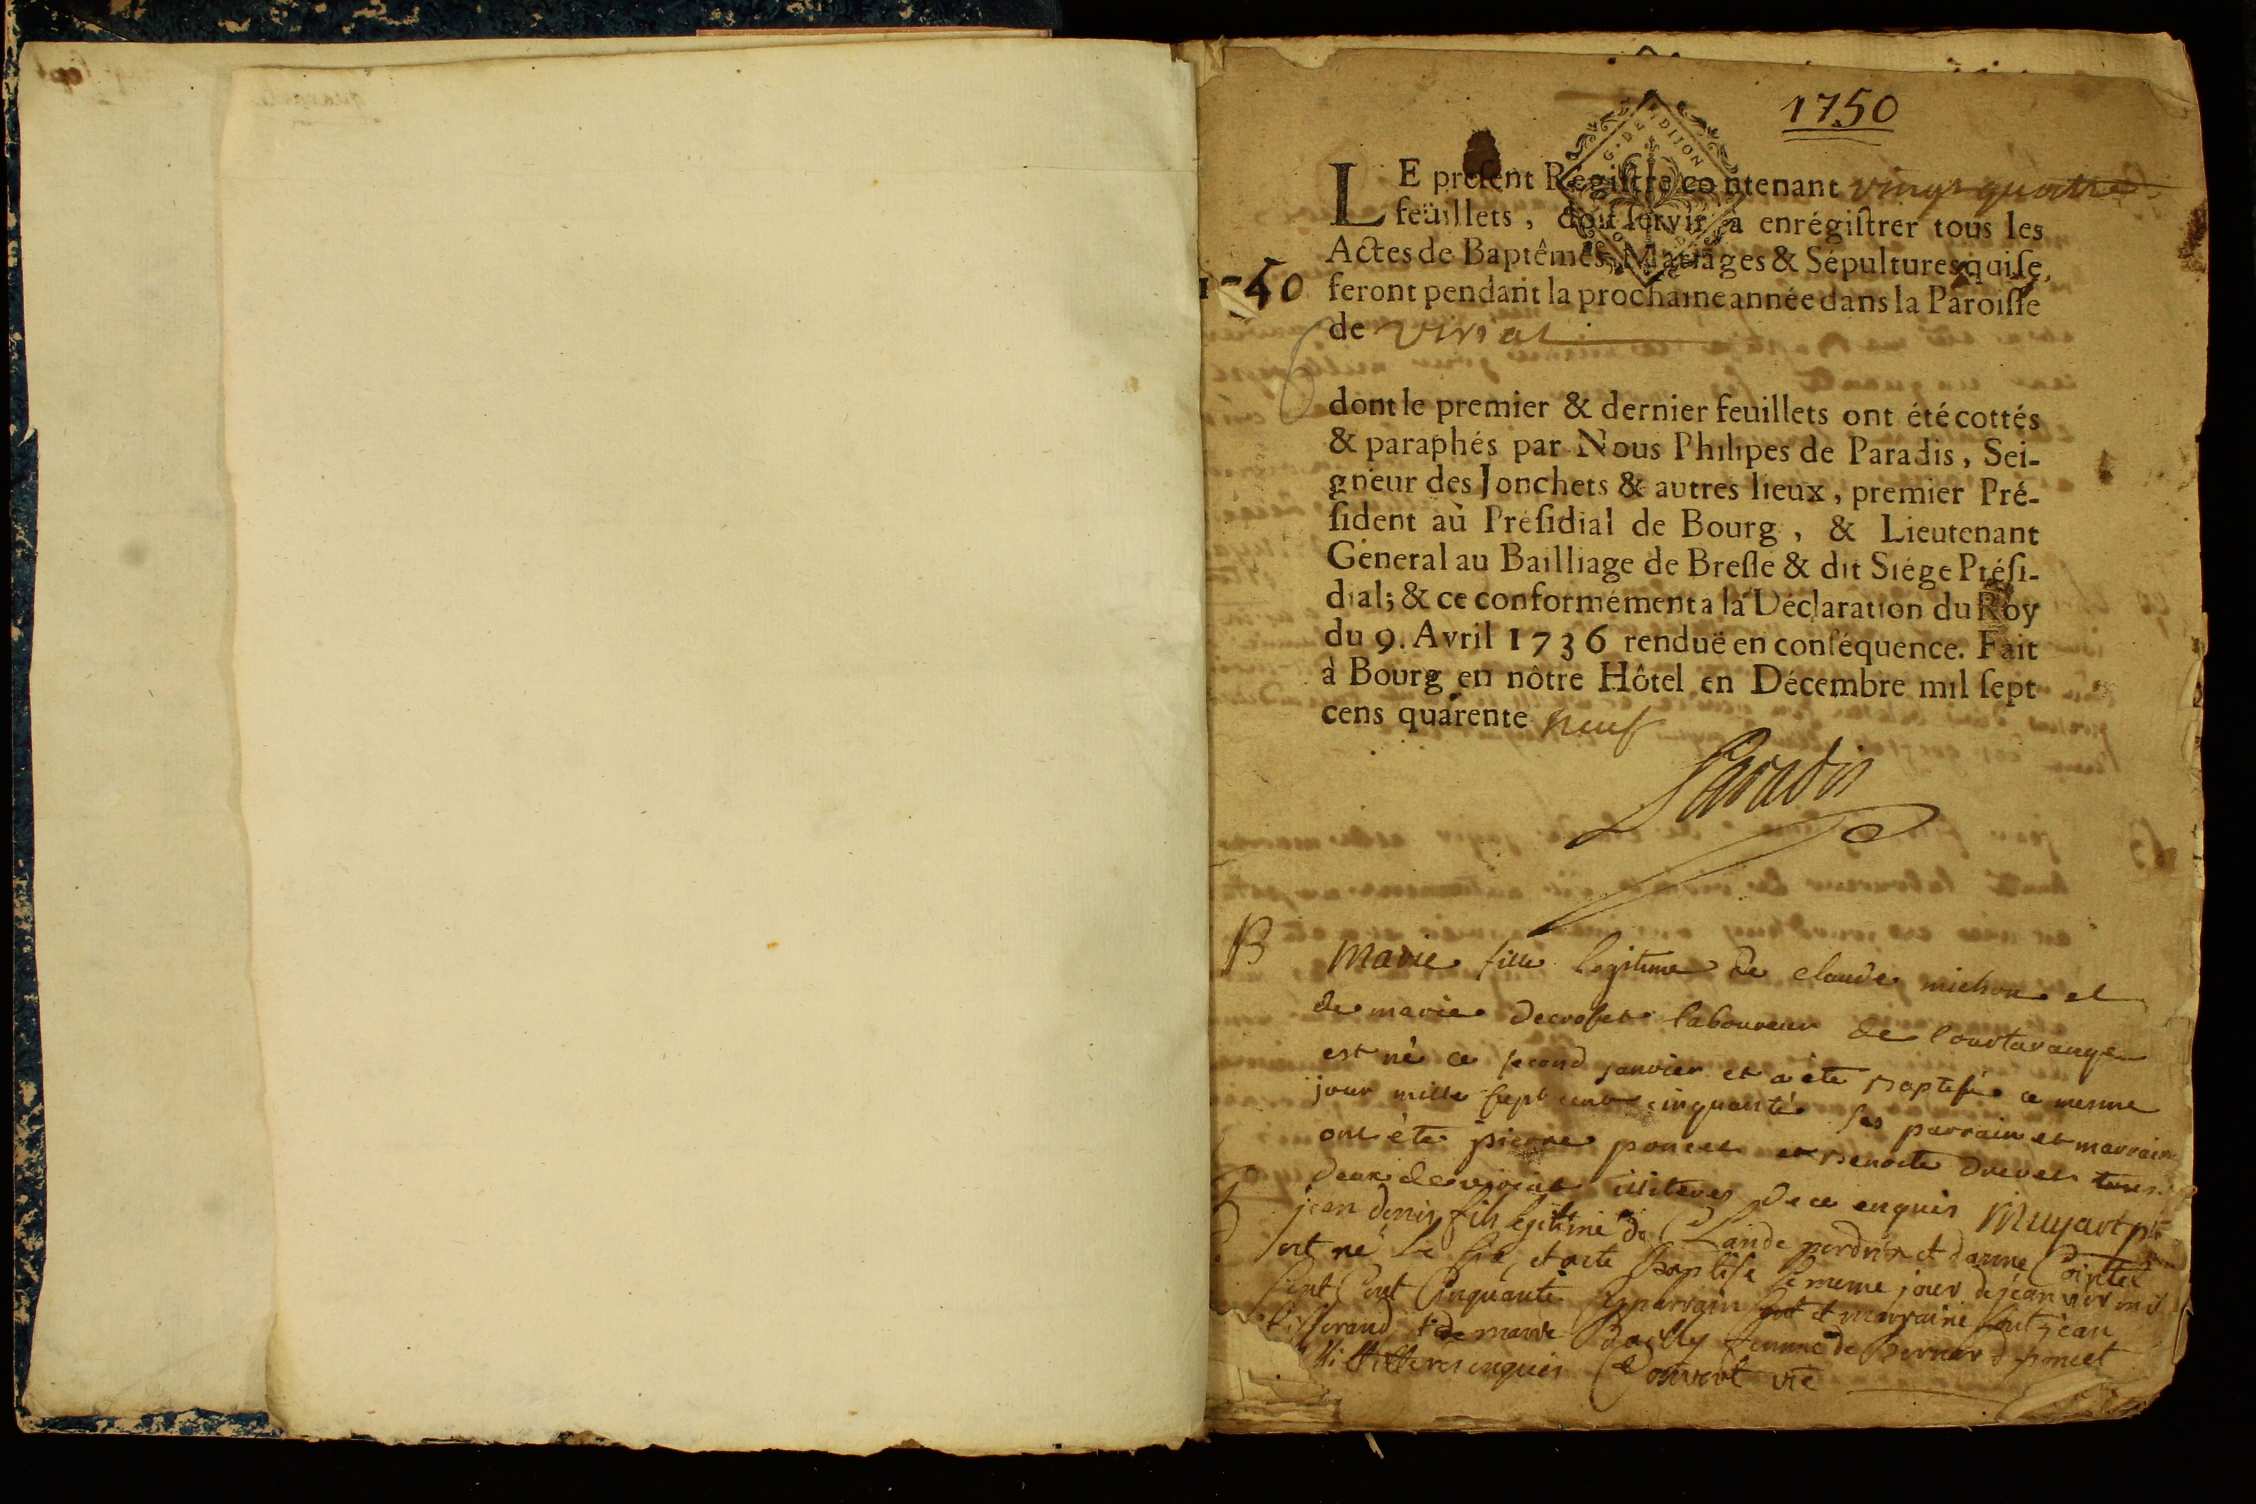 1750
LE preſent Regiſtre contenant vingt quatre
feüillets, doit ſervir à enrégiſtrer tous les
Actes de Baptêmes, Mariages & Sépultures qui ſe
feront pendant la prochaine année dans la Paroiſſe
de viriat
dont le premier & dernier feuillets ont été cottés
& paraphés par Nous Philipes de Paradis, Sei-
gneur des Jonchets & autres lieux, premier Pré-
ſident au Préſidial de Bourg, & Lieutenant
Géneral au Bailliage de Breſſe & dit Siége Préſi-
dial; & ce conformément a la Déclaration du Roy
du 9. Avril 1736 renduë en conſéquence. Fait
à Bourg en nôtre Hôtel en Décembre mil ſept
cens quarente neuf
Paradis
B
Marie fille legitime de claude michon et
de marie decrofet laboureur de
est né ce second janvier et a été baptisé ce mesme
jour mille sept cent cinquante ses parrain et marraine
ont été pierre poncet et benoite drevet tous
deux de viriat illiteres de ce enquis Muyart ptre
jean denis fils legitime de Claude perdrix et danne
est né le six et a ete Baptise le meme jour de jeanvier mil
sept Cent Cinquante parrain et marraine sont jean
et marie Bailly femme de Bernard poncet
enquis vre